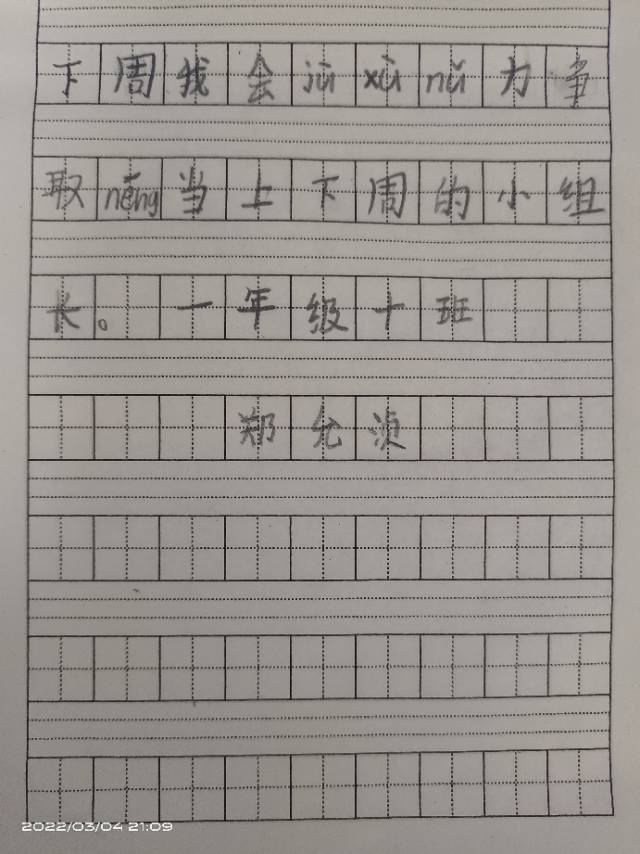 下周我会jìxùnǔ力争
取néng当上下周的小组
长。一年级十班
郑允浈
2022/03/04 21:09